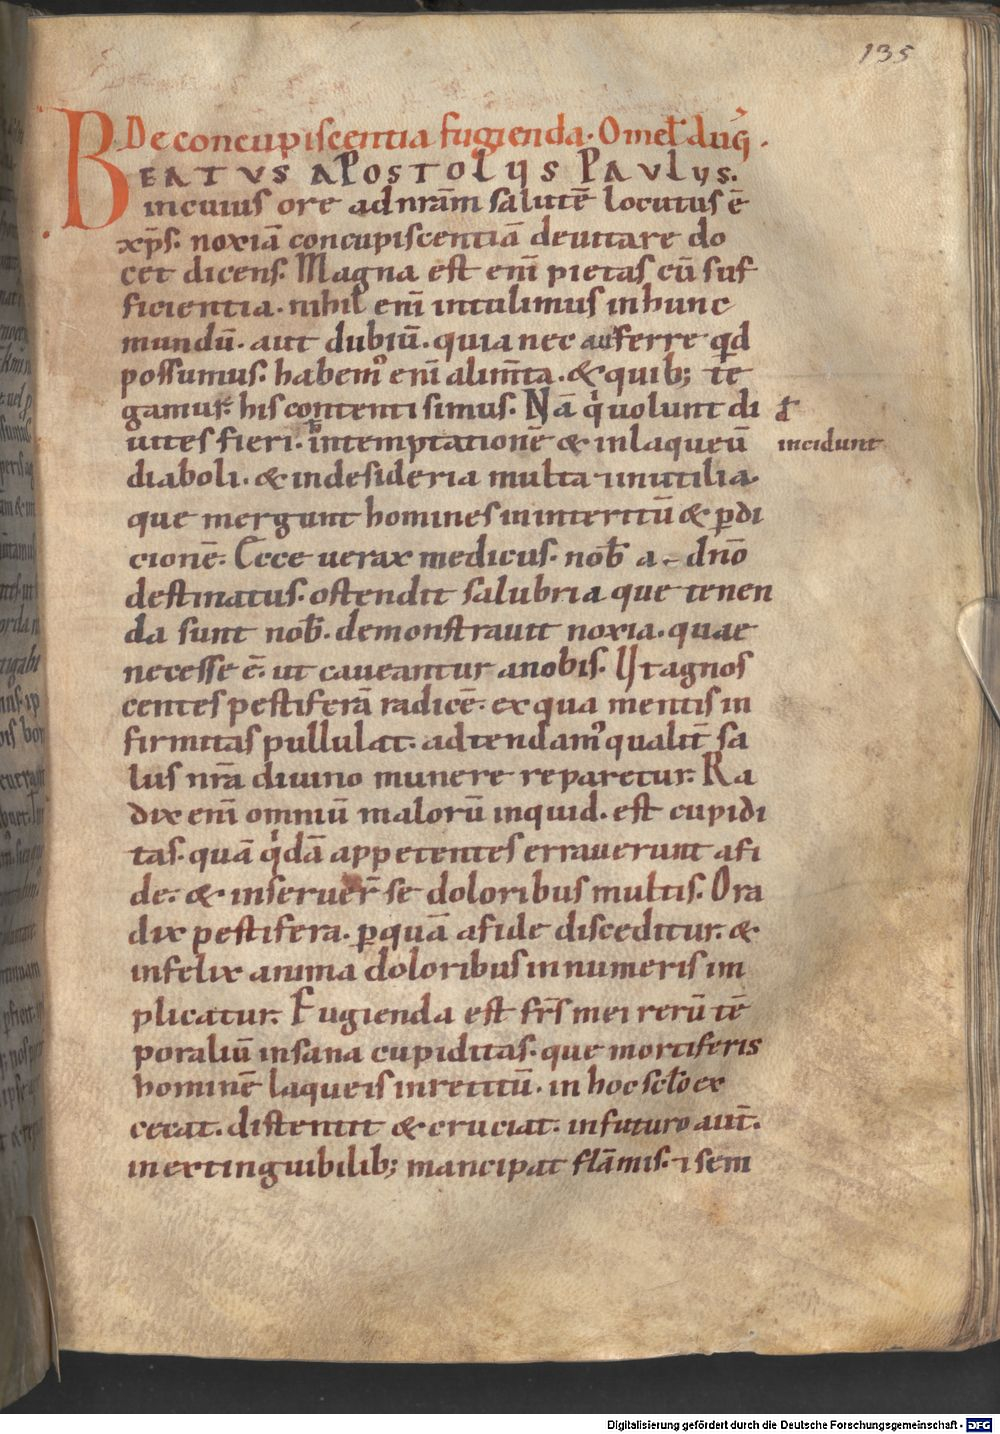 135
De concupiscentia fugienda. Omel̅ augꝰ.
BEATVS APOSTOLVS PAVLVS.
in cuius ore ad nr̅a̅m salute̅ locutus e̅
xp̅s. noxia̅ concupiscentia̅ deuitare do
cet dicens. Magna est eni̅ pietas cu̅ suf
ficientia. nihil eni̅ intulimus in hunc
mundu̅. aut dubiu̅. quia nec auferre qd̅
possumus. habemꝰ eni̅ alim̅ta. & quib; te
gamur. his contenti simus. Na̅ q̇ uolunt di
uites fieri. in temptatione̅ & in laqueu̅
incidunt
diaboli. & in desideria multa ⁊ inutilia.
que mergunt homines in interitu̅ & ꝑdi
cione̅. Ecce uerax medicus. nob̅ a dn̅o
destinatus. ostendit salubria que tenen
da sunt nob̅. demonstrauit noxia. quae
necesse e̅. ut caueantur a nobis. Ut agnos
centes pestifera̅ radice̅. ex qua mentis in
firmitas pullulat. adtendamꝰ qualit̅ sa
lus nr̅a diuino munere reparetur. Ra
dix eni̅ omniu̅ maloru̅ inquid. est cupidi
tas. qua̅ q̇da̅ appetentes errauerunt a fi
de. & inseruer̅ se doloribus multis. O ra
dix pestifera. ꝑ qua̅ a fide disceditur. &
infelix anima doloribus innumeris im
plicatur. Fugienda est fr̅s mei reru̅ te̅
poraliu̅ insana cupiditas. que mortiferis
homine̅ laqueis inretitu̅. in hoc sclo̅ ex
cecat. distentit & cruciat. in futuro aut̅.
inextinguibilib; mancipat fla̅mis. ⁊ sem
Digitalisierung gefördert durch die Deutsche Forschungsgemeinschaft - DFG